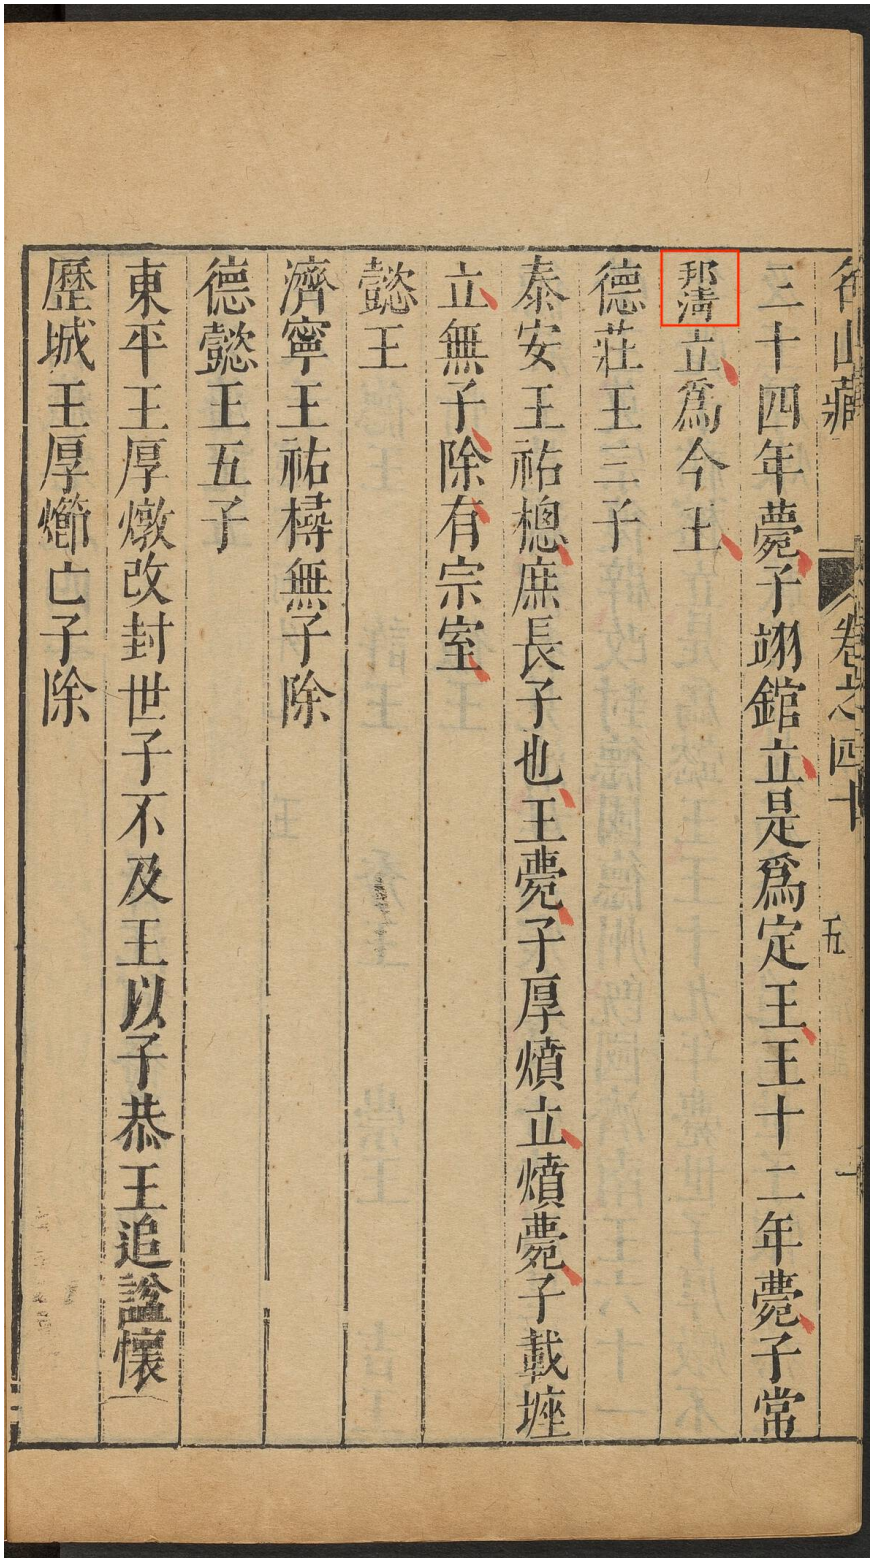 名山藏 卷之四十 五
三十四年薨子翊錧立是爲定王王十二年薨子常
邦淸立爲今王
德莊王三子
泰安王祐樬庶長子也王薨子厚燌立燌薨子載
立無子除有宗室
懿王
濟寧王祐樳無子除
德懿王五子
東平王厚燉改封世子不及王以子恭王追諡懷
歷城王厚亡子除